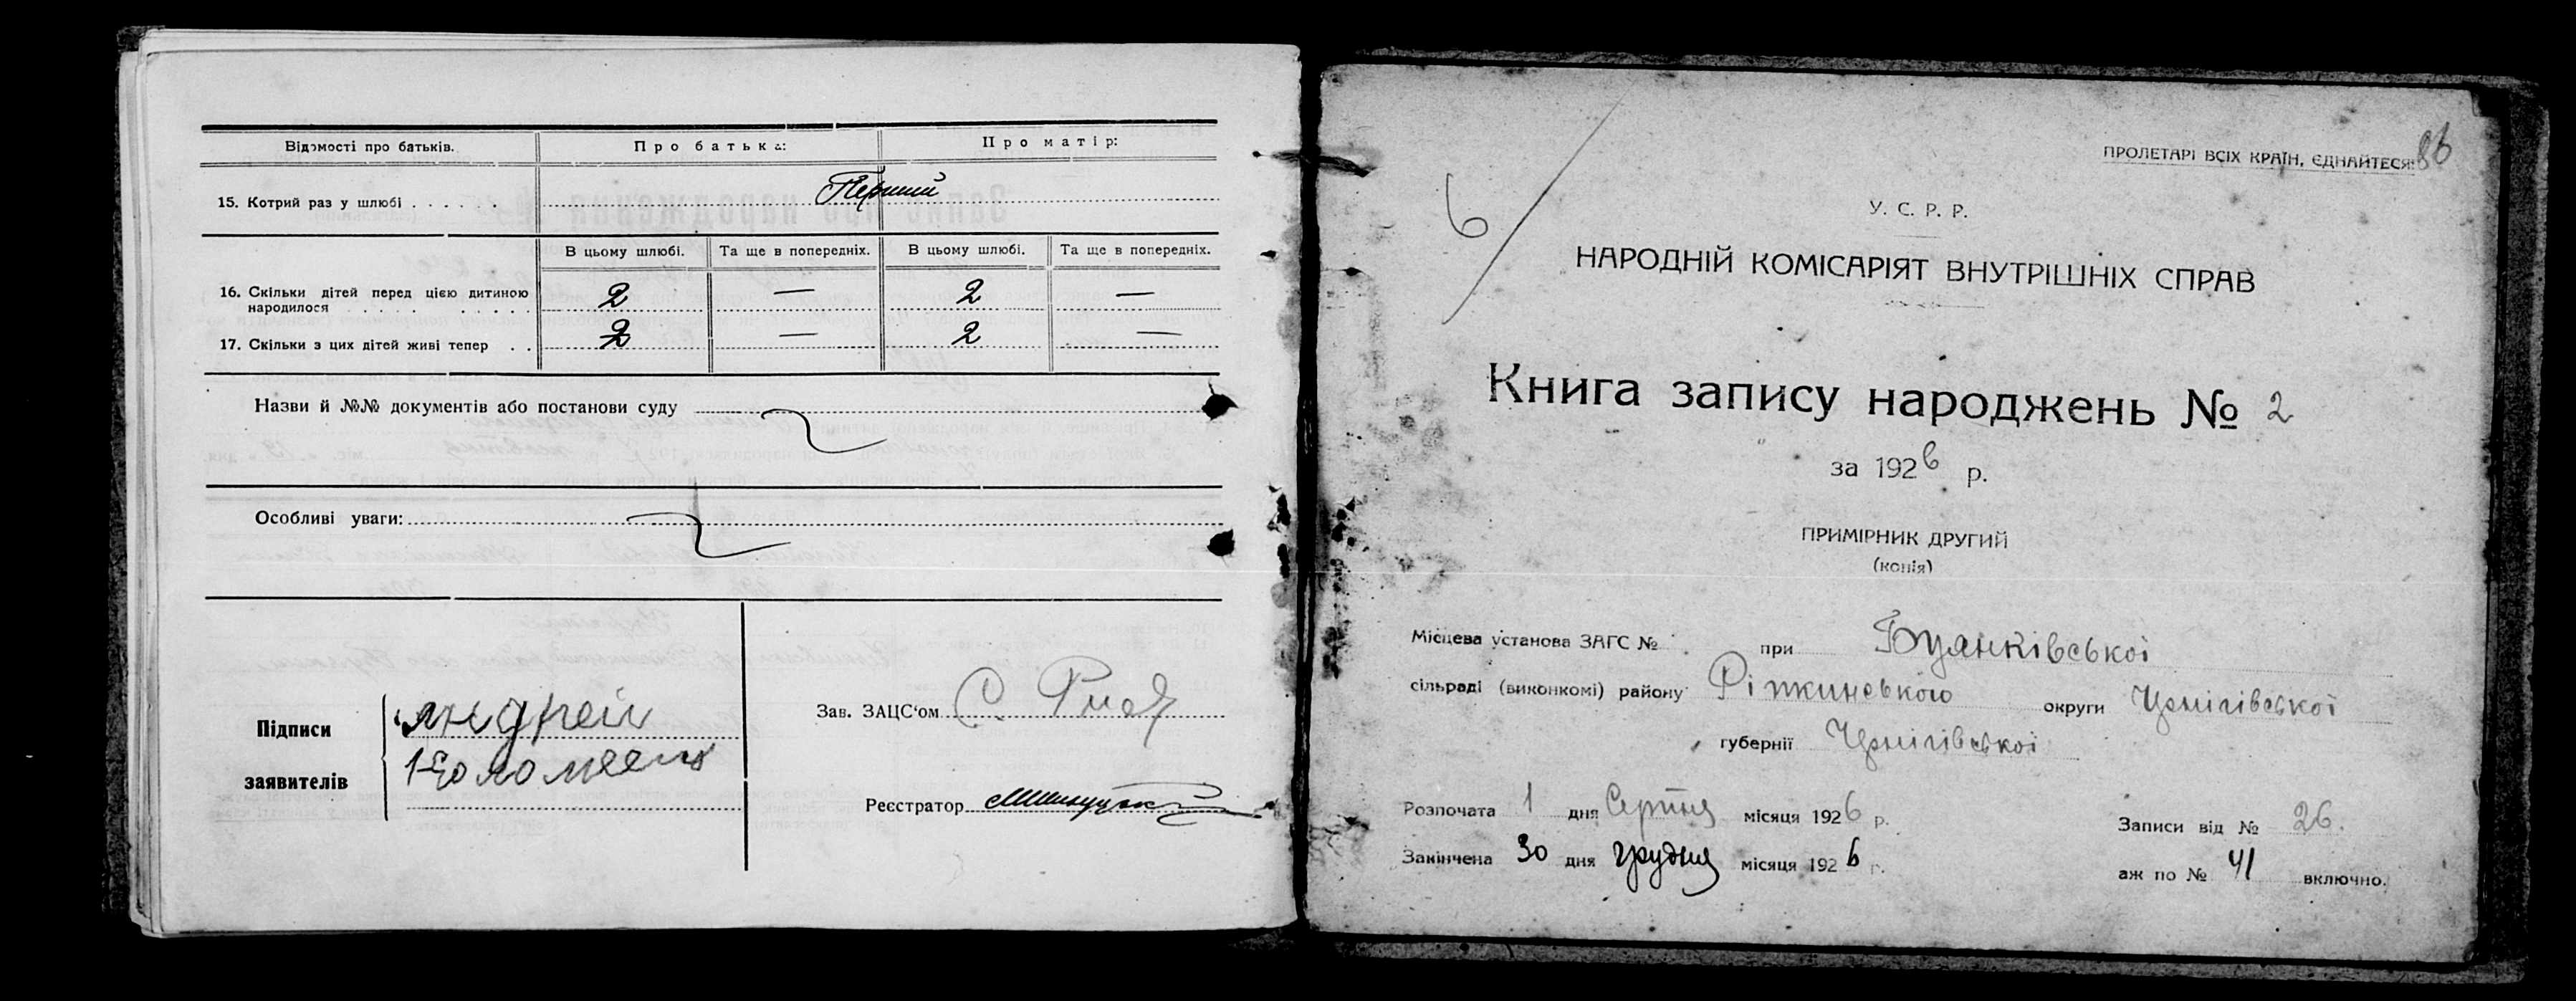 Відомості про батьків. Про батька: Про матір:
15. Котрий раз у шлюбі . . . . . Перший
В цьому шлюбі. Та ще в попередніх. В цьому шлюбі. Та ще в попередніх.
16. Скільки дітей перед цією дитиною
народилося . . . . . . . . . 2 — 2 —
17. Скільки з цих дітей живі тепер . . 2 — 2 —
Назви й №№ документів або постанови суду
Особливі уваги:
Підписи
заявителів
Андрей
Коломеець
Зав. ЗАЦС‘ом С.
Реєстратор
86
ПРОЛЕТАРІ ВСІХ КРАЇН, ЄДНАЙТЕСЯ!
6
У. С. Р. Р.
НАРОДНІЙ КОМІСАРІЯТ ВНУТРІШНІХ СПРАВ
Книга запису народжень № 2
за 1926 р.
ПРИМІРНИК ДРУГИЙ
(копія)
Місцева установа ЗАГС № при Буянківської
сільраді (виконкомі) району Ріпкинського округи Чернігівської
губернії Чернігівської
Розпочата 1 дня Серпня місяця 1926 р.
Закінчена 30 дня грудня місяця 1926 р.
Записи від № 26.
аж по № 41 включно.